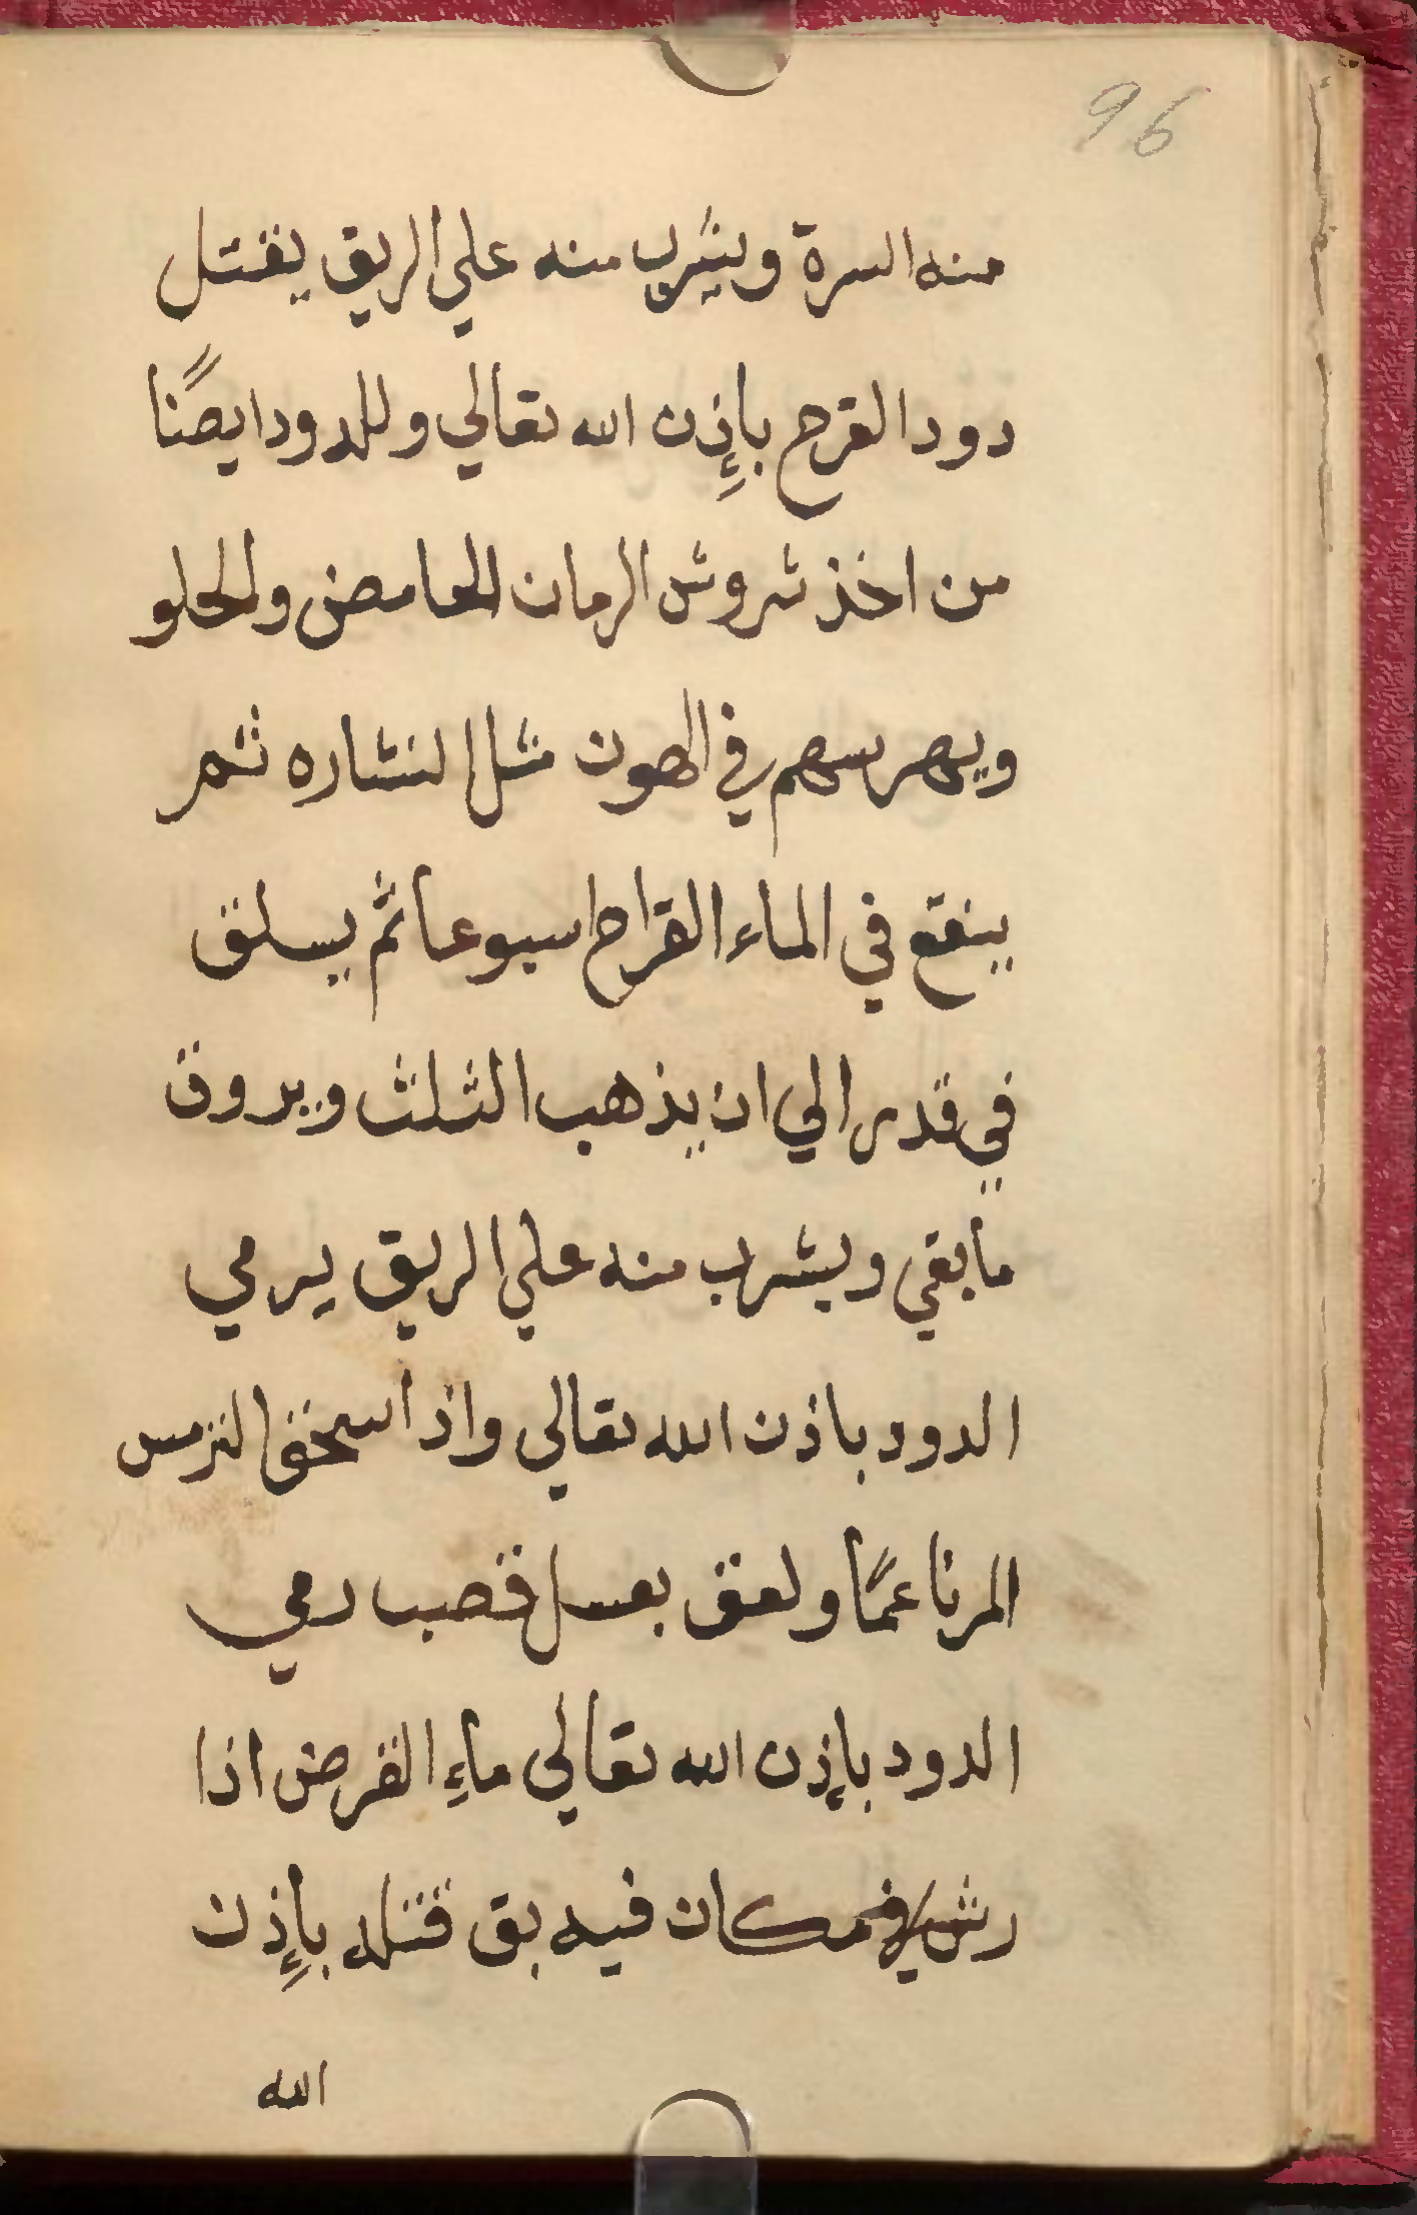 96
منه السرة ويشرب منه علي الريق يقتل
دود القرح بإذن الله تعالي وللدود ايضًا
من اخذ شروش الرمان الحامض والحلو
ويهرسهم في الهون مثل النشاره ثم
ينقع في الماء القراح اسبوعا ثم يسلق
في قدر الي ان يذهب الثلث ويروق
مابقي ويشرب منه علي الريق يرمي
الدود باذن الله تعالي واذا سحق الترمس
المر ناعمًا ولعق بعسل قصب رمي
الدود بإذن الله تعالي ماء القرض اذا
رش في مكان فيه بق قتله بإذن
الله